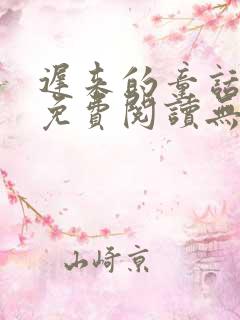 遲來的童話
免費閱讀無
山崎京